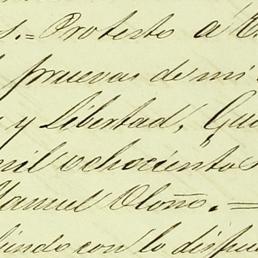 s.= Protesto á
pruevas de mi
y Libertad, Que
mil ochocientos
Manuel Oloño.=
liendo con lo dispue